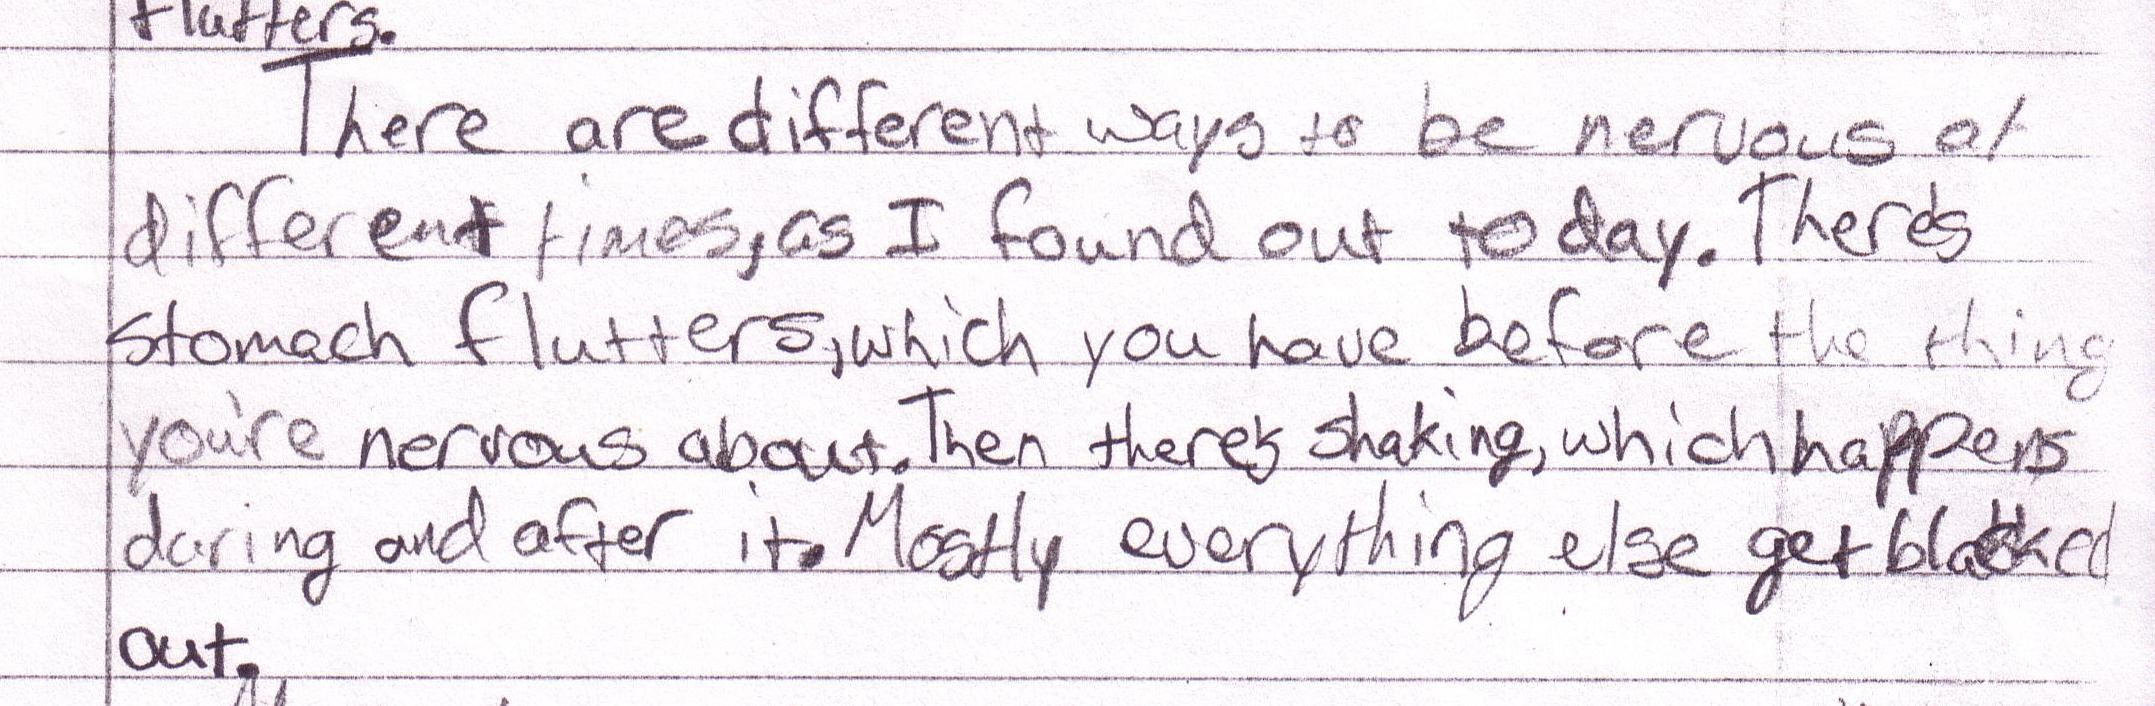 flutters.
There are different ways to be nervous at
different times, as I found out today. There's
stomach flutters, which you have before the thing
you're nervous about. Then there's shaking, which happens
during and after it. Mostly everything else get blacked
out.